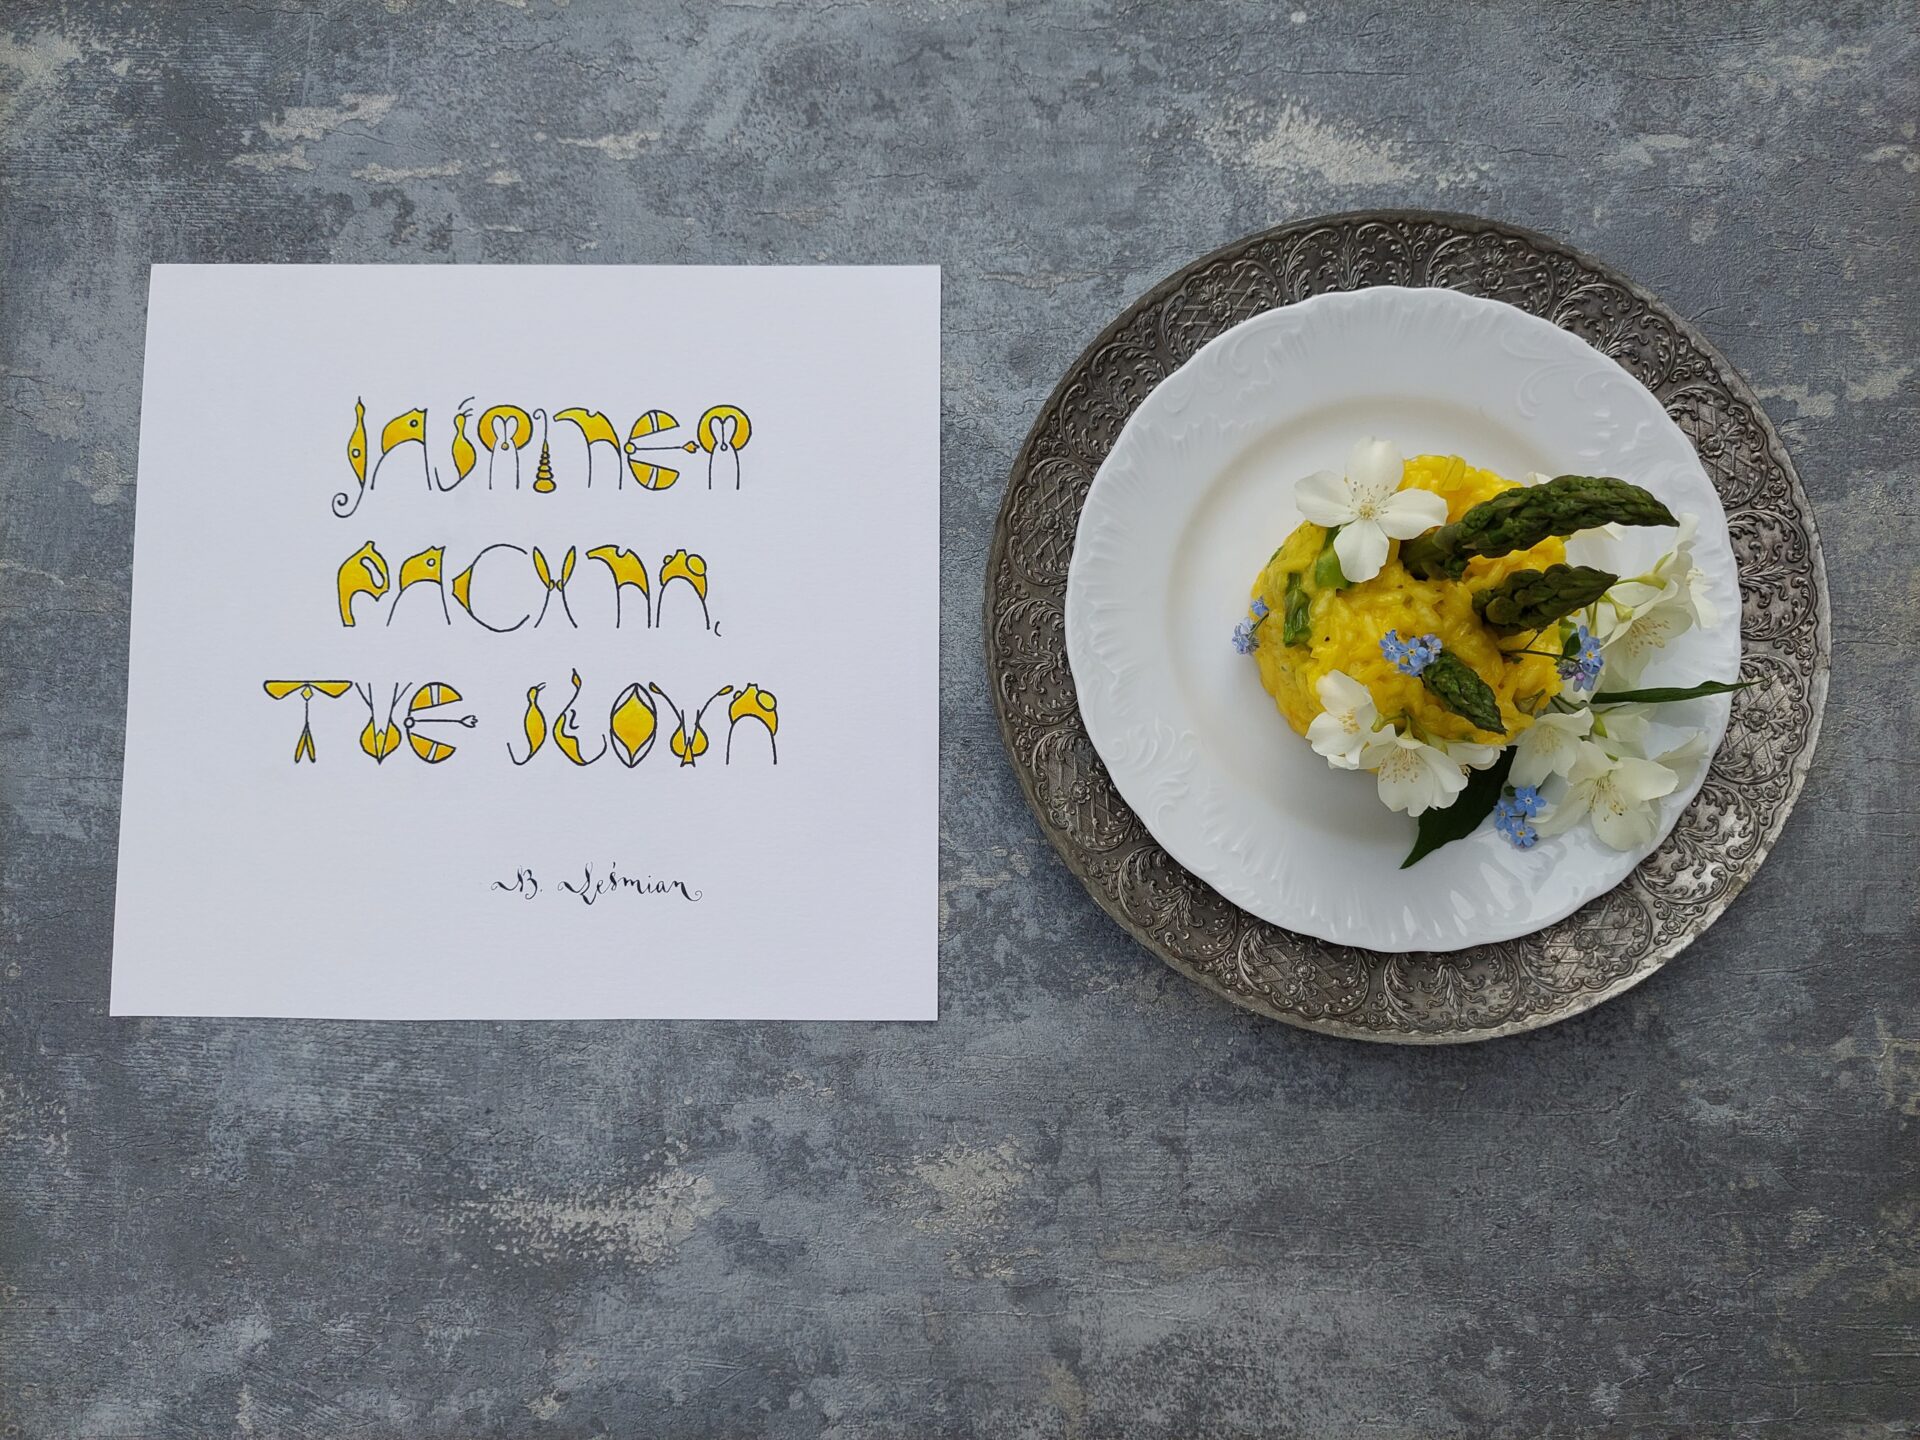 JAŚMINEM
PACHNĄ
TWE SŁOWA
B. Leśmian